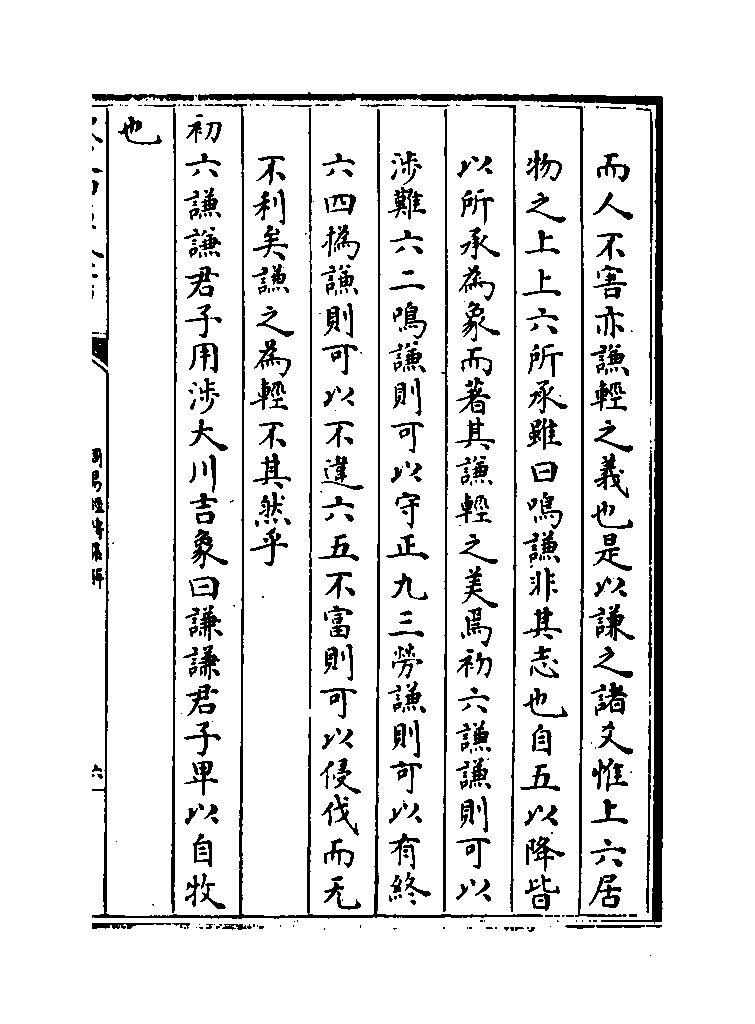 而人不害亦謙輕之義也是以謙之諸爻惟上六居
物之上上六所承雖曰鳴謙非其志也自五以降皆
以所承為象而著其謙輕之美焉初六謙謙則可以
涉難六二鳴謙則可以守正九三勞謙則可以有終
六四撝謙則可以不違六五不富則可以侵伐而无
不利矣謙之為輕不其然乎
初六謙謙君子用涉大川吉象曰謙謙君子卑以自牧
也
周易經傳集解